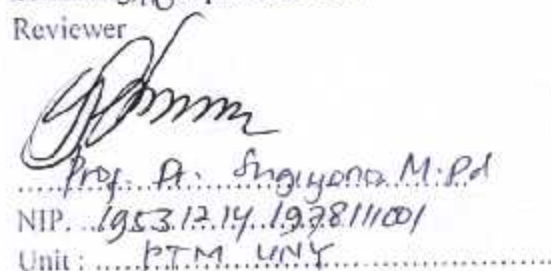 Reviewer
Prof. Dr. Sugiyono M.Pd
NIP. 19531214 1978111001
Unit : PTM UNY